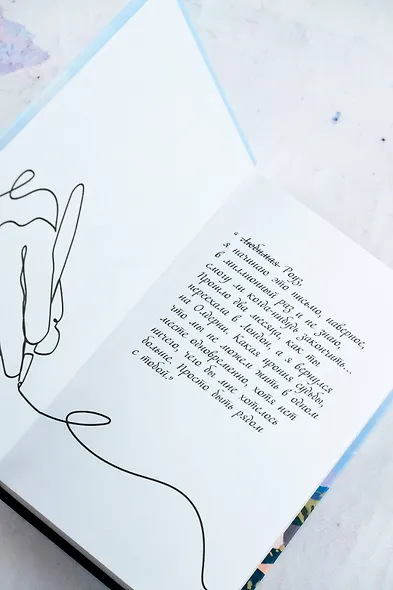 " Любимая Роуз,
я начинаю это письмо, наверное,
в миллионный раз и не знаю,
смогу ли когда-нибудь закончить...
Прошло два месяца, как ты
переехала в Лондон, а я вернулся
на Олдерни. Какая ирония судьбы,
что мы не можем быть в одном
месте одновременно, хотя нет
ничего, чего бы мне хотелось
больше. Просто быть рядом
с тобой."